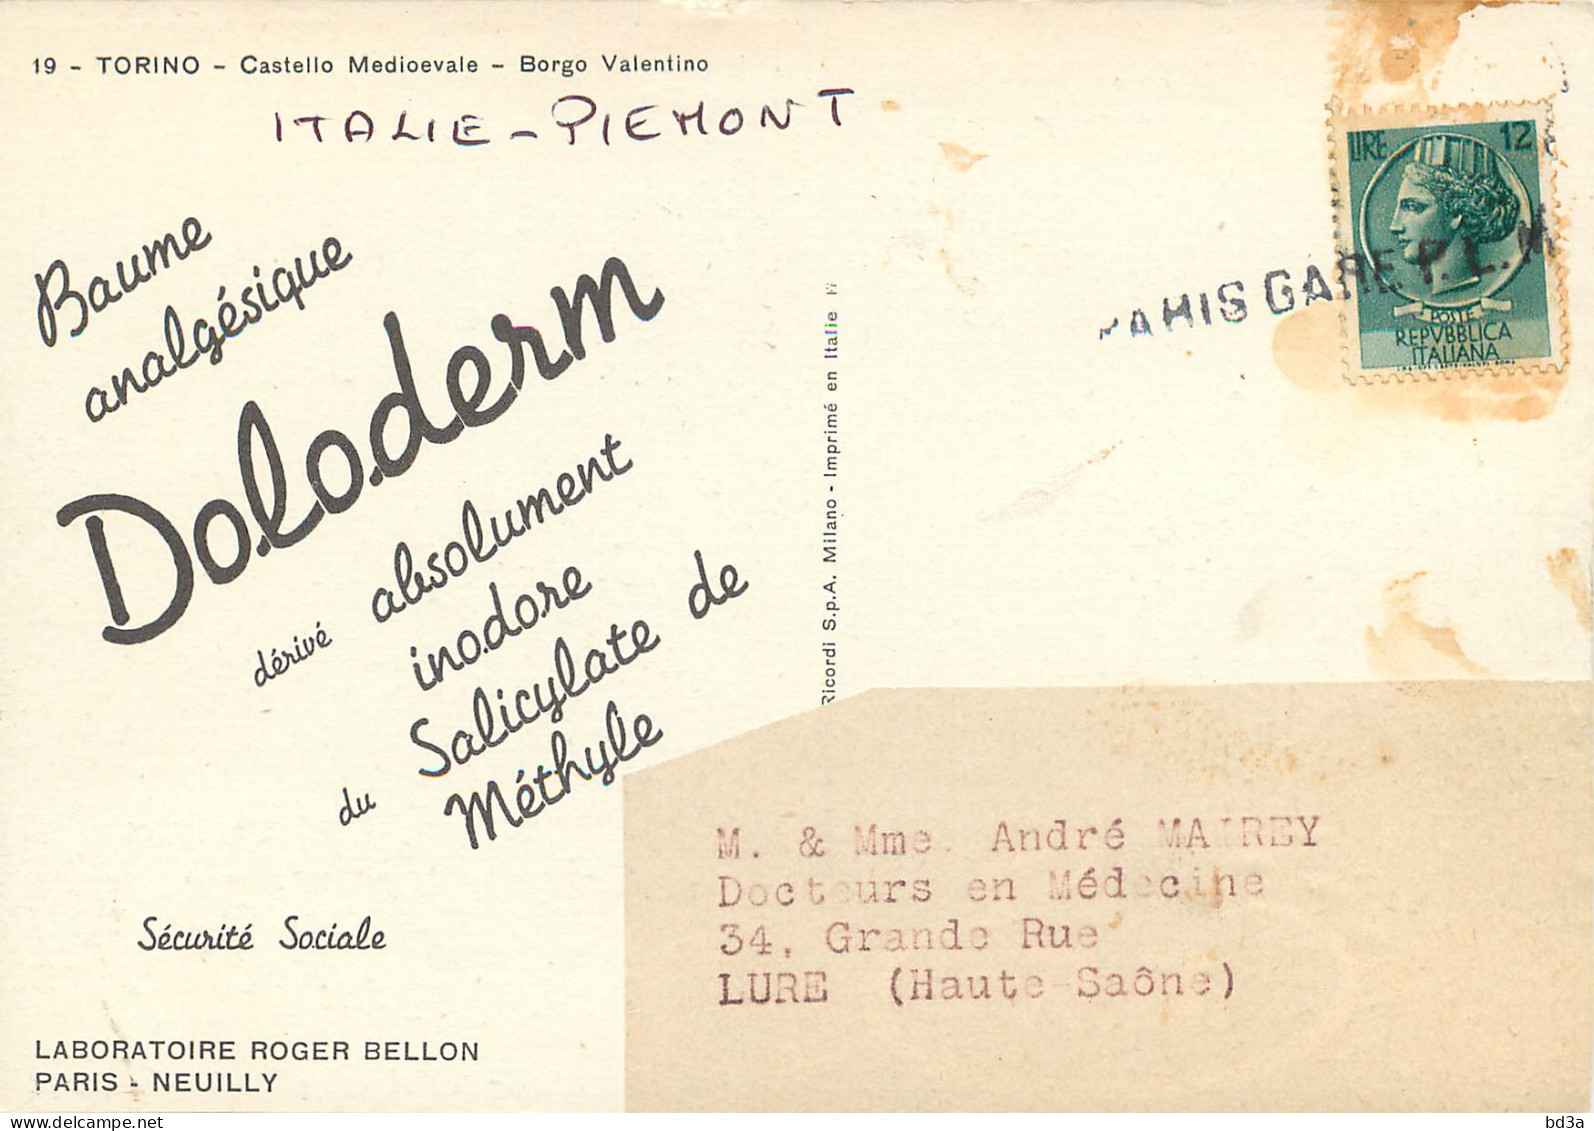 19 - TORINO - Castello Medioevale - Borgo Valentino
ITALIE - PIEMONT
Baume
analgésique
Doloderm
dérivé absolument
inodore
du Salicylate de
Méthyle
Sécurité Sociale
LABORATOIRE ROGER BELLON
PARIS - NEUILLY
Ricordi S.p.A. Milano - Imprimé en Italie
LIRE 12
POSTE
REPVBBLICA
ITALIANA
PARIS GARE P.L.M
M. & Mme. André MAIREY
Docteurs en Médecine
34, Grande Rue
LURE (Haute-Saône)
delcampe.net
bd3a